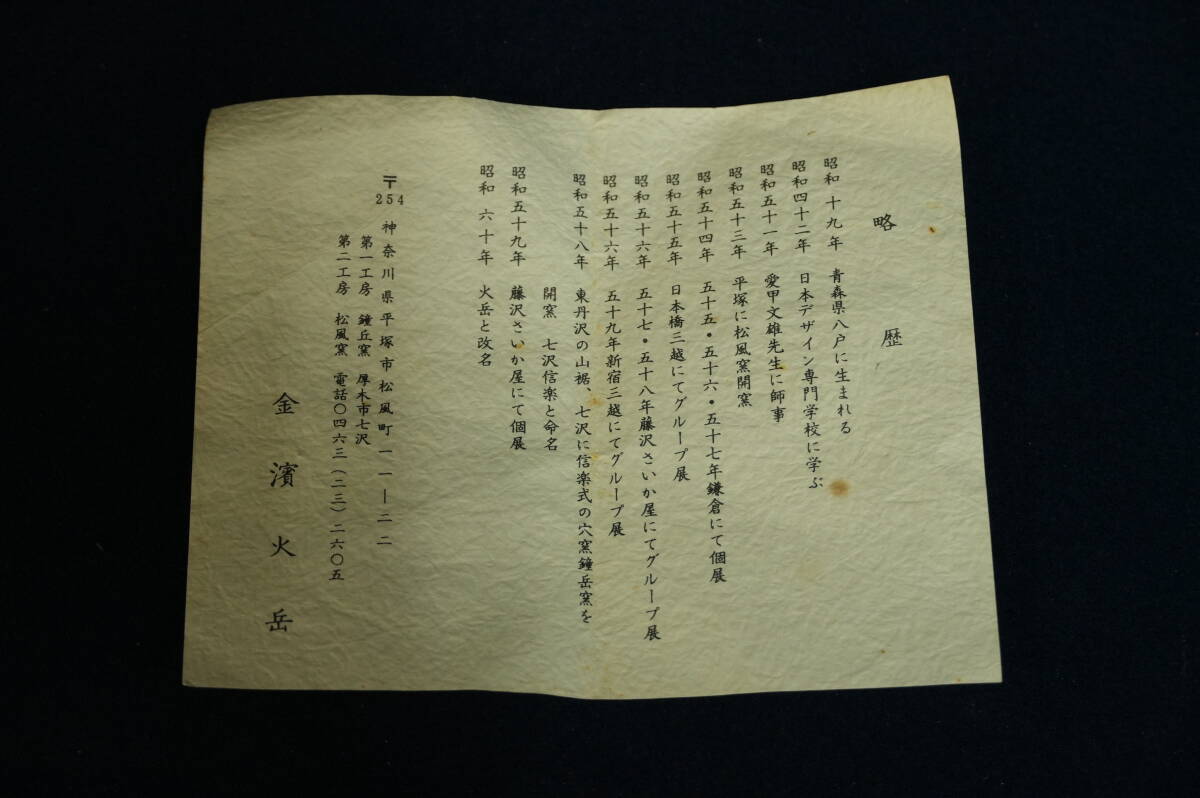 略歴
昭和十九年 青森県八戸に生まれる
昭和四十二年 日本デザイン専門学校に学ぶ
昭和五十一年 愛甲文雄先生に師事
昭和五十三年 平塚に松風窯開窯
昭和五十四年 五十五・五十六・五十七年鎌倉にて個展
昭和五十五年 日本橋三越にてグループ展
昭和五十六年 五十七・五十八年藤沢さいか屋にてグループ展
昭和五十六年 五十九年新宿三越にてグループ展
昭和五十八年 東丹沢の山裾、七沢に信楽式の穴窯鐘岳窯を
開窯 七沢信楽と命名
昭和五十九年 藤沢さいか屋にて個展
昭和六十年 火岳と改名
〒254 神奈川県平塚市松風町一一―二二
第一工房 鐘丘窯 厚木市七沢
第二工房 松風窯 電話〇四六三(二三)二六〇五
金濱火岳